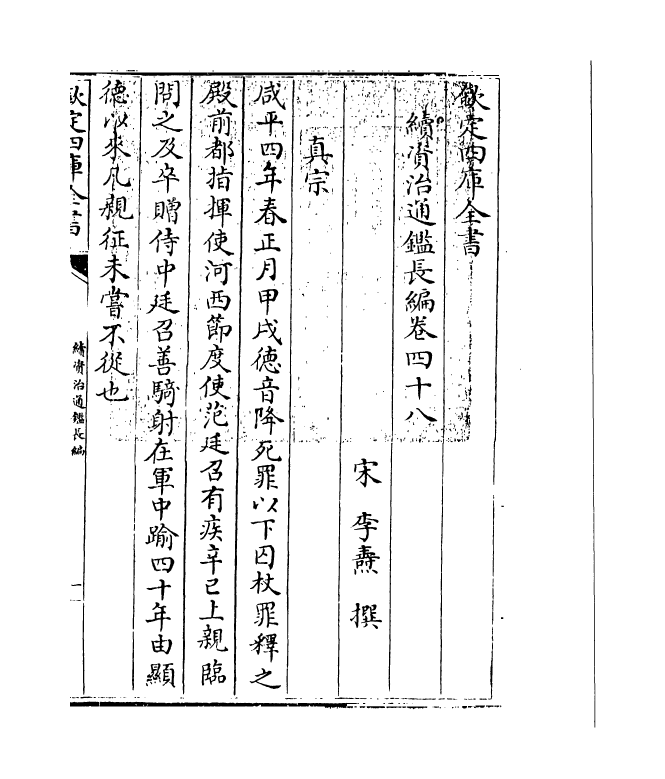 欽定四庫全書
續資治通鑑長編卷四十八
宋 李燾 撰
真宗
咸平四年春正月甲戌德音降死罪以下囚杖罪釋之
殿前都指揮使河西節度使范廷召有疾辛巳上親臨
問之及卒贈侍中廷召善騎射在軍中踰四十年由顯
德以來凡親征未嘗不從也
欽定四庫全書
續資治通鑑長編
一